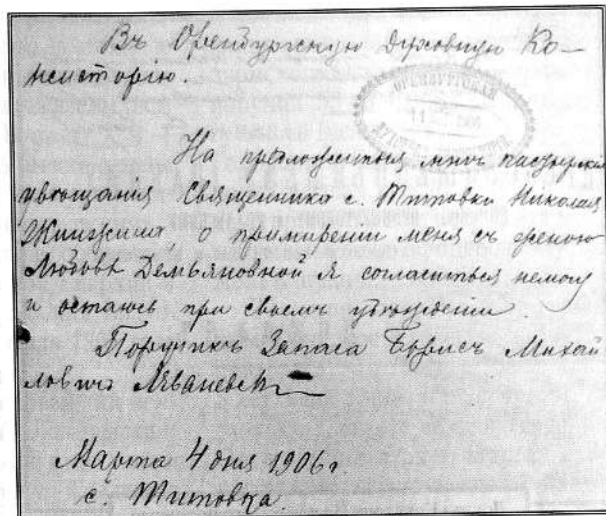 Въ Оренбургскую Духовную Ко-
нсисторію.
ОРЕНБУРГСКАЯ
На предложенныя мнѣ пастырскія
увѣщанія Священника с. Титовки Николая
о примиреніи меня съ женою
Любовью Демьяновной я согласиться немогу
и остаюсь при своемъ убѣжденіи.
Поручикъ Запаса Борисъ Михай
ловичъ
Марта 4 дня 1906 г.
с. Титовка.